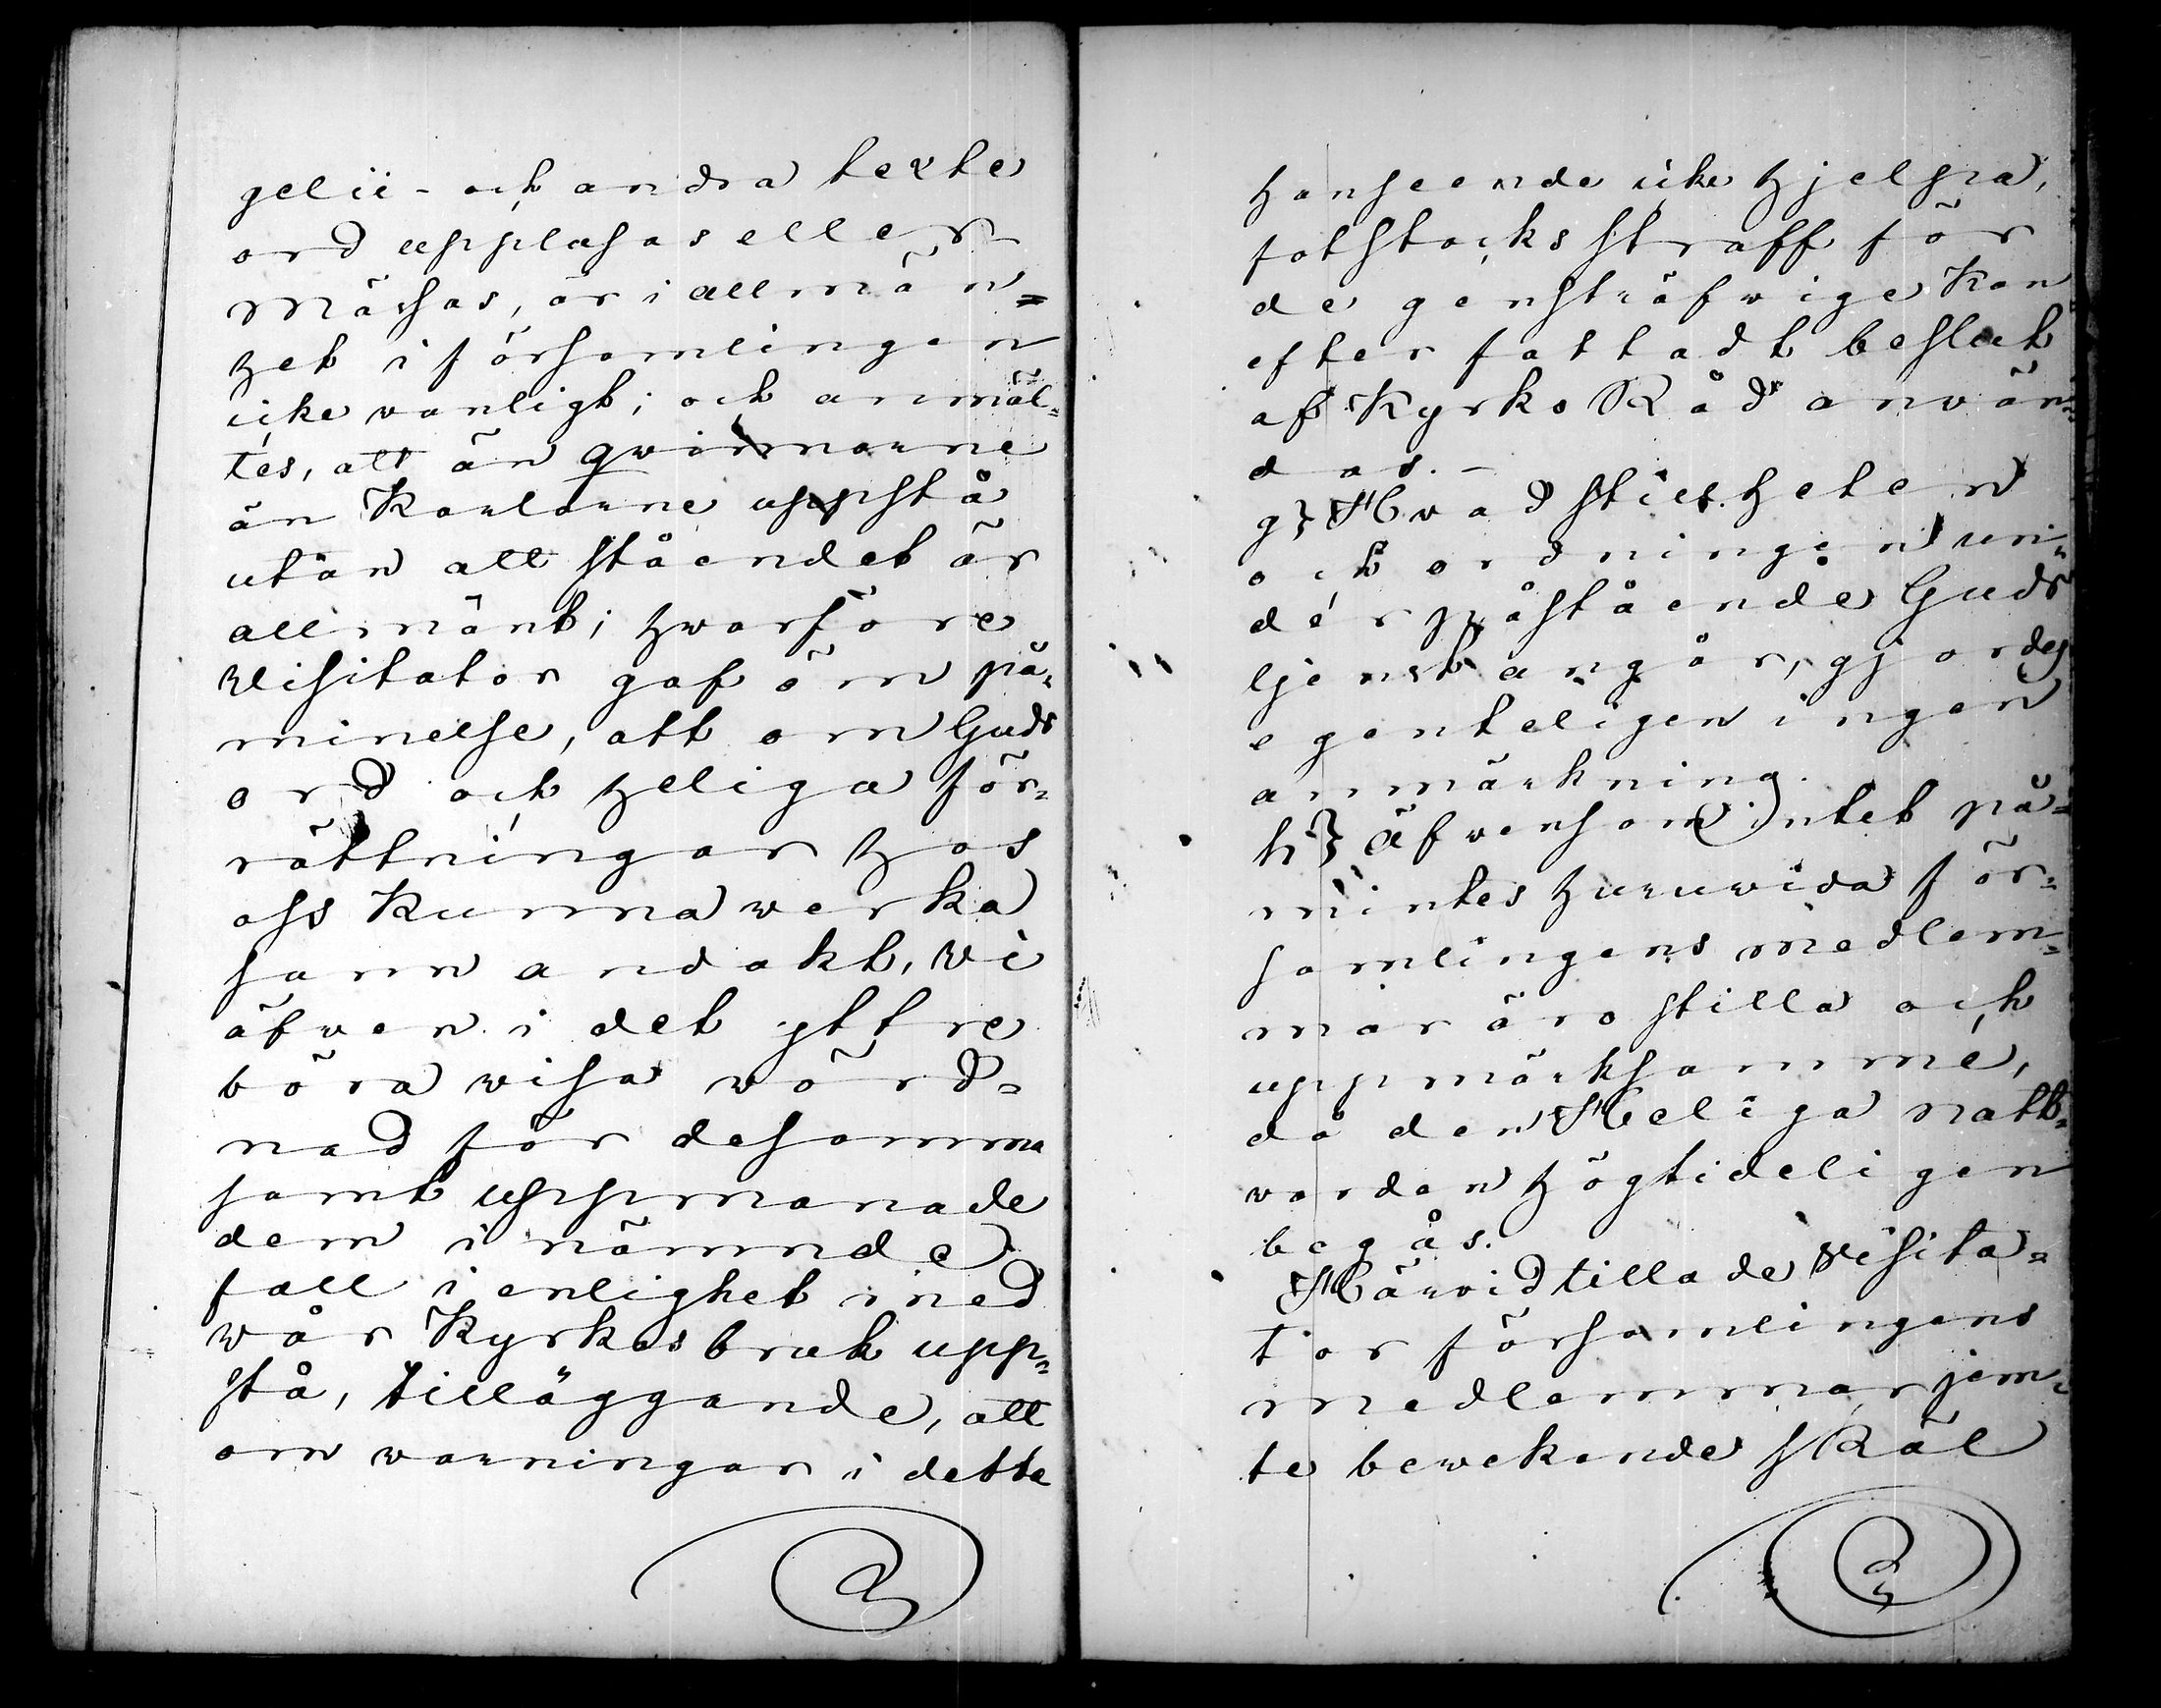 gelii- och andra texte
ord upplasas eller
Mässas, är i allmän=
het i församlingen
icke vanligt; och anmäl=
tes, att än qwinnorne
än Karlarne uppstå
utan att ståendet är
allmänt; hwarföre
Visitator gaf öm på=
minelse, att om Guds
ord och heliga för=
rättningar hos
oss Kunna werka
sann andakt, wi
äfwen i det yttre
böra wisa wörd=
nad för desamma
samt uppmanade
dem i nämnde
fall i enlighet med
wår Kyrkas bruk upp=
stå, tilläggande, att
om warningar i detta
hänseende icke hjelpa,
fotstocks straff för
de gensträfwige Kan
efter fattadt beslut
af Kyrko Råd anwän=
das.-
g} Hwad stillheten
och ordningen un=
der påstående Guds
tjenst angår, gjordes
egenteligen ingen
anmärkning.
h} äfwensom intet på=
mintes huruwida för=
samlingens medlem=
mar äro stilla och
uppmärksamme,
då den Heliga natt=
warden högtideligen
begås.
Härwid tillade Visita=
tor församlingens
medlemmar jem=
te bewekande skäl